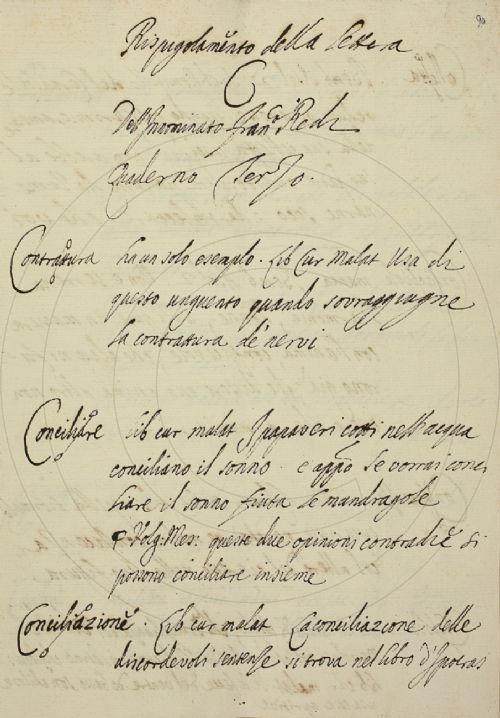 90
Rispigolamento della lettera
C
Dell'Innominato Fran.co Redi
Quaderno Terzo.
Contrattura ha un solo esempio. Lib Cur Malat Usa di
questo unguento quando sovraggiugne
la contrattura de' nervi
Conciliare Lib cur malat I papaveri cotti nell'acqua
conciliano il sonno. e app.o Se vorrai conci
liare il sonno fiuta le mandragole
Volg: Mes: queste due opinioni contradie si
possono conciliare insieme
Conciliazione. Lib cur malat La conciliazione delle
discordevoli sentense si trova nel libro d'Ipocras